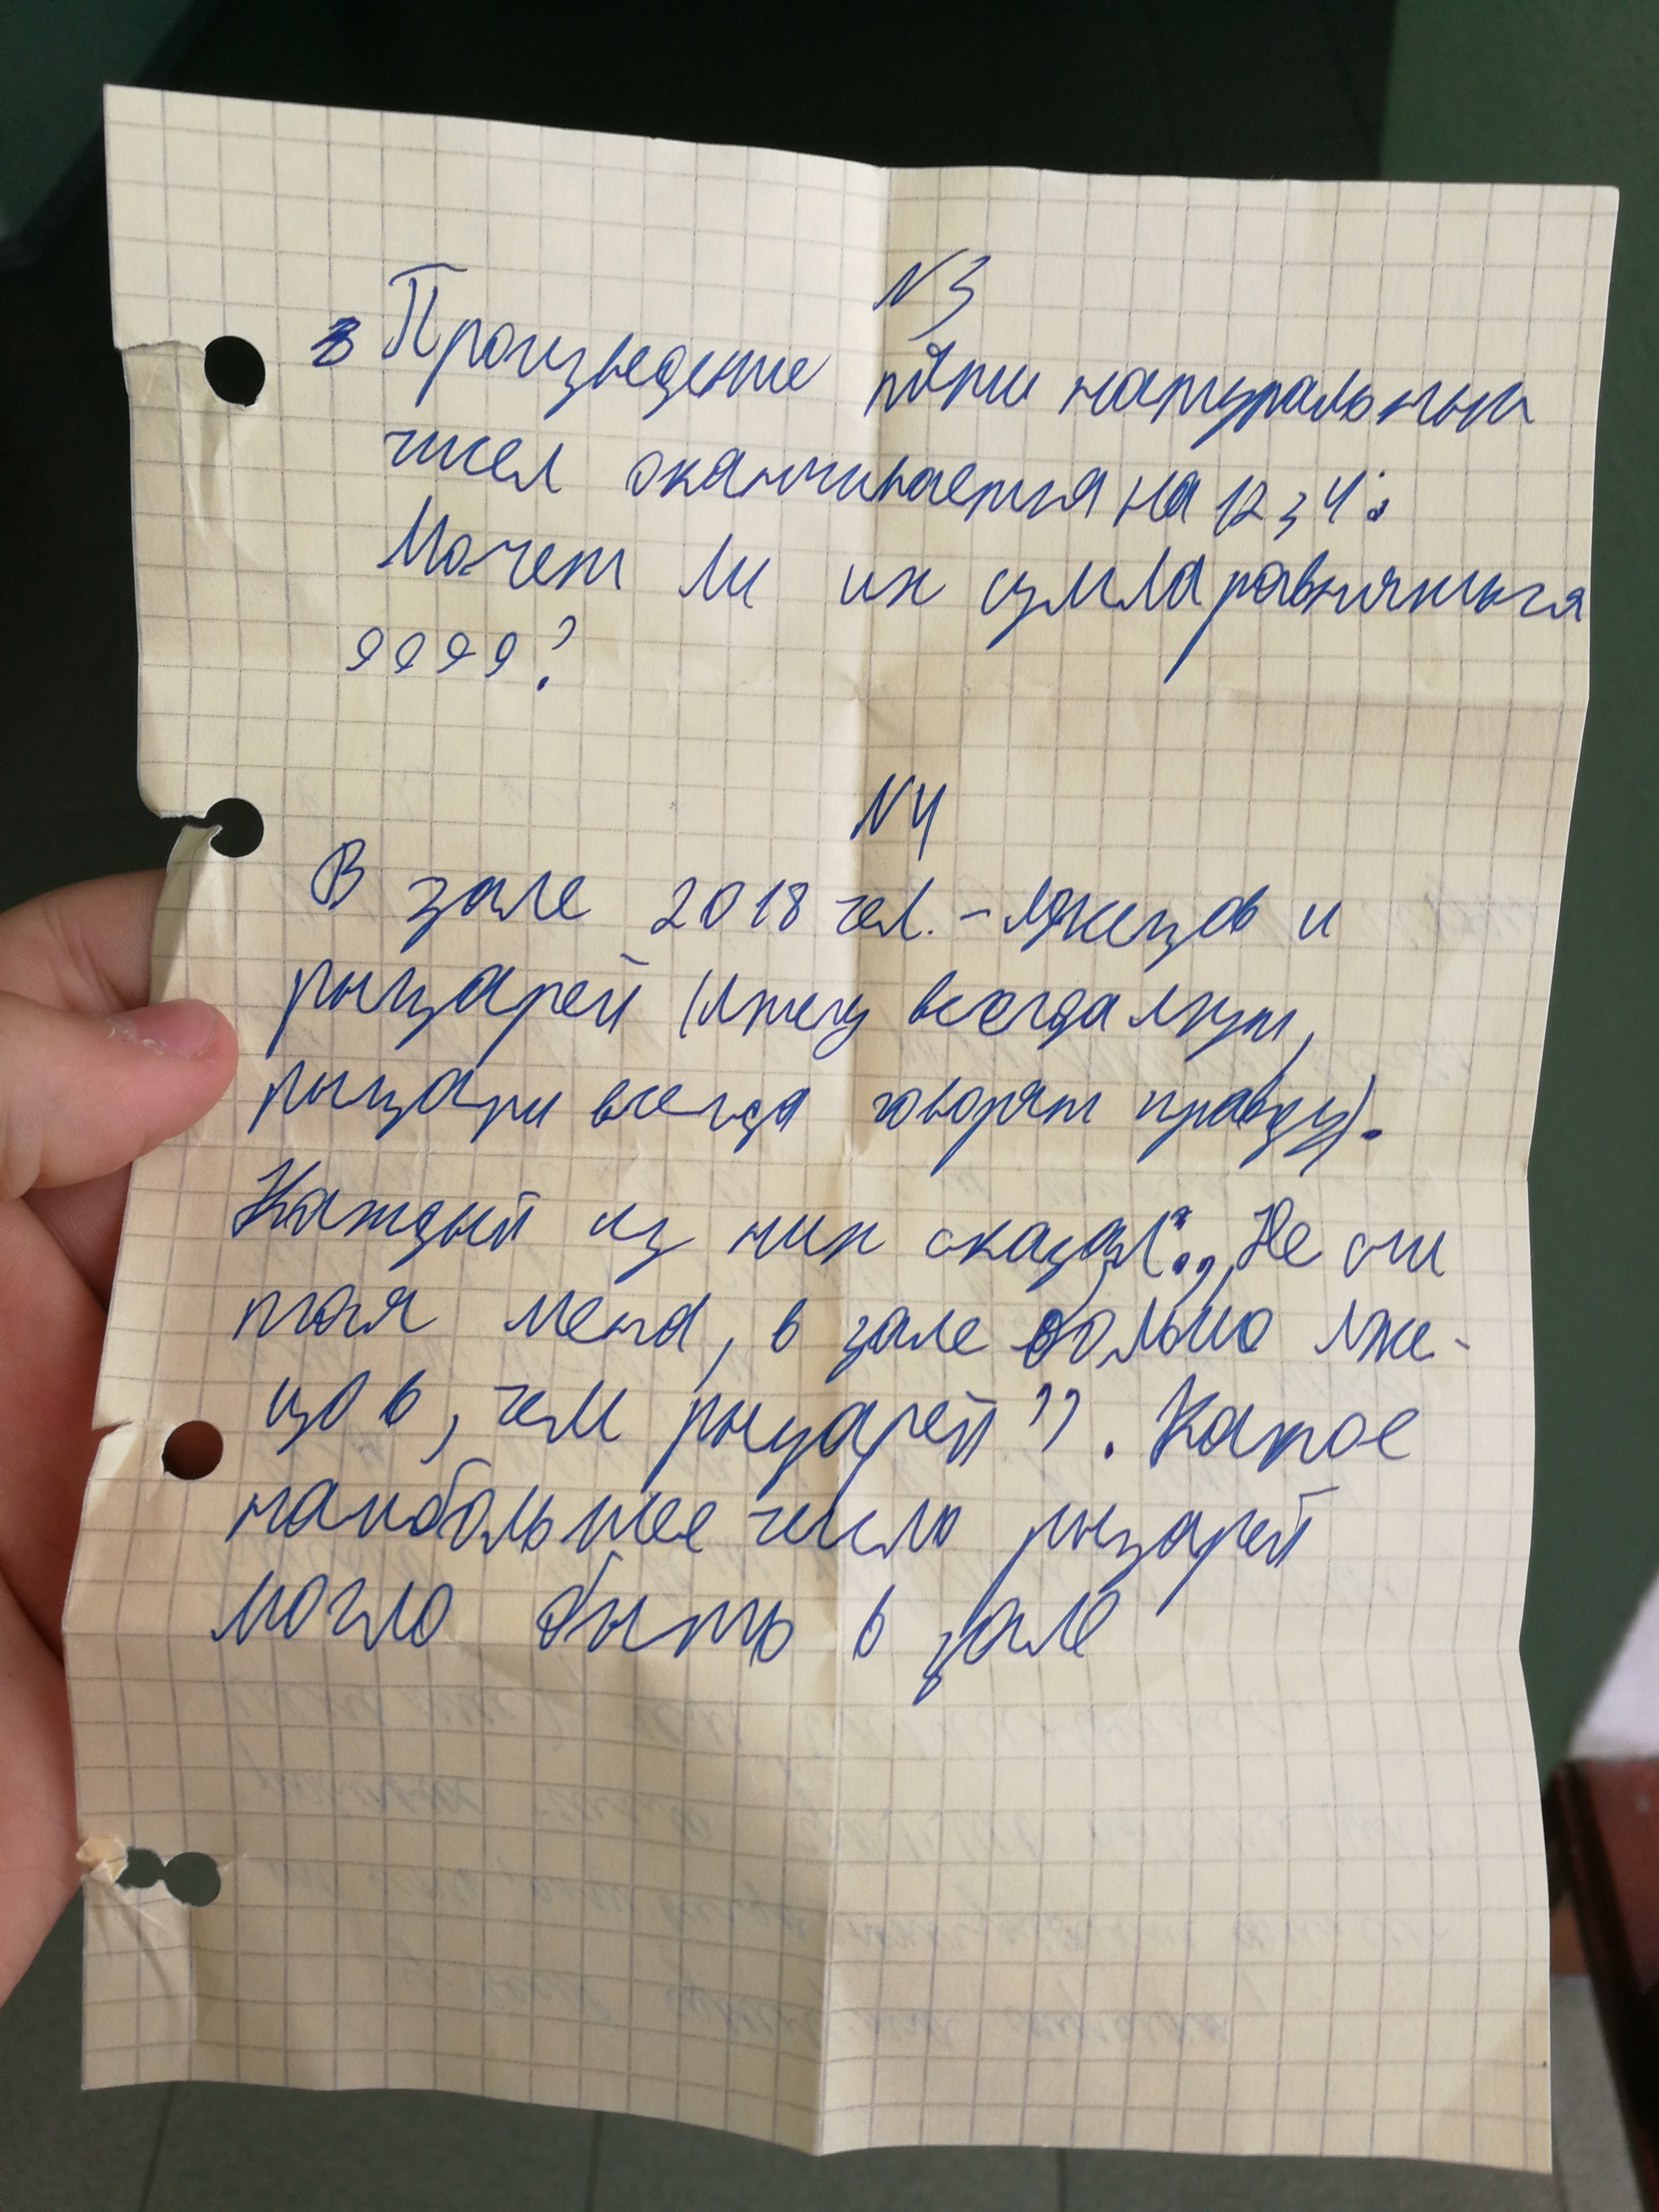 N3
Произведение пяти натуральных
чисел оканчивается на 1234.
Может ли их сумма равняться
9999?
N4
В зале 2018 чел. - лжецов и
рыцарей (лжецы всегда лгут,
рыцари всегда говорят правду).
Каждый из них сказал: „Не счи
тая меня, в зале больше лже-
цов, чем рыцарей”. Какое
наибольшее число рыцарей
могло быть в зале